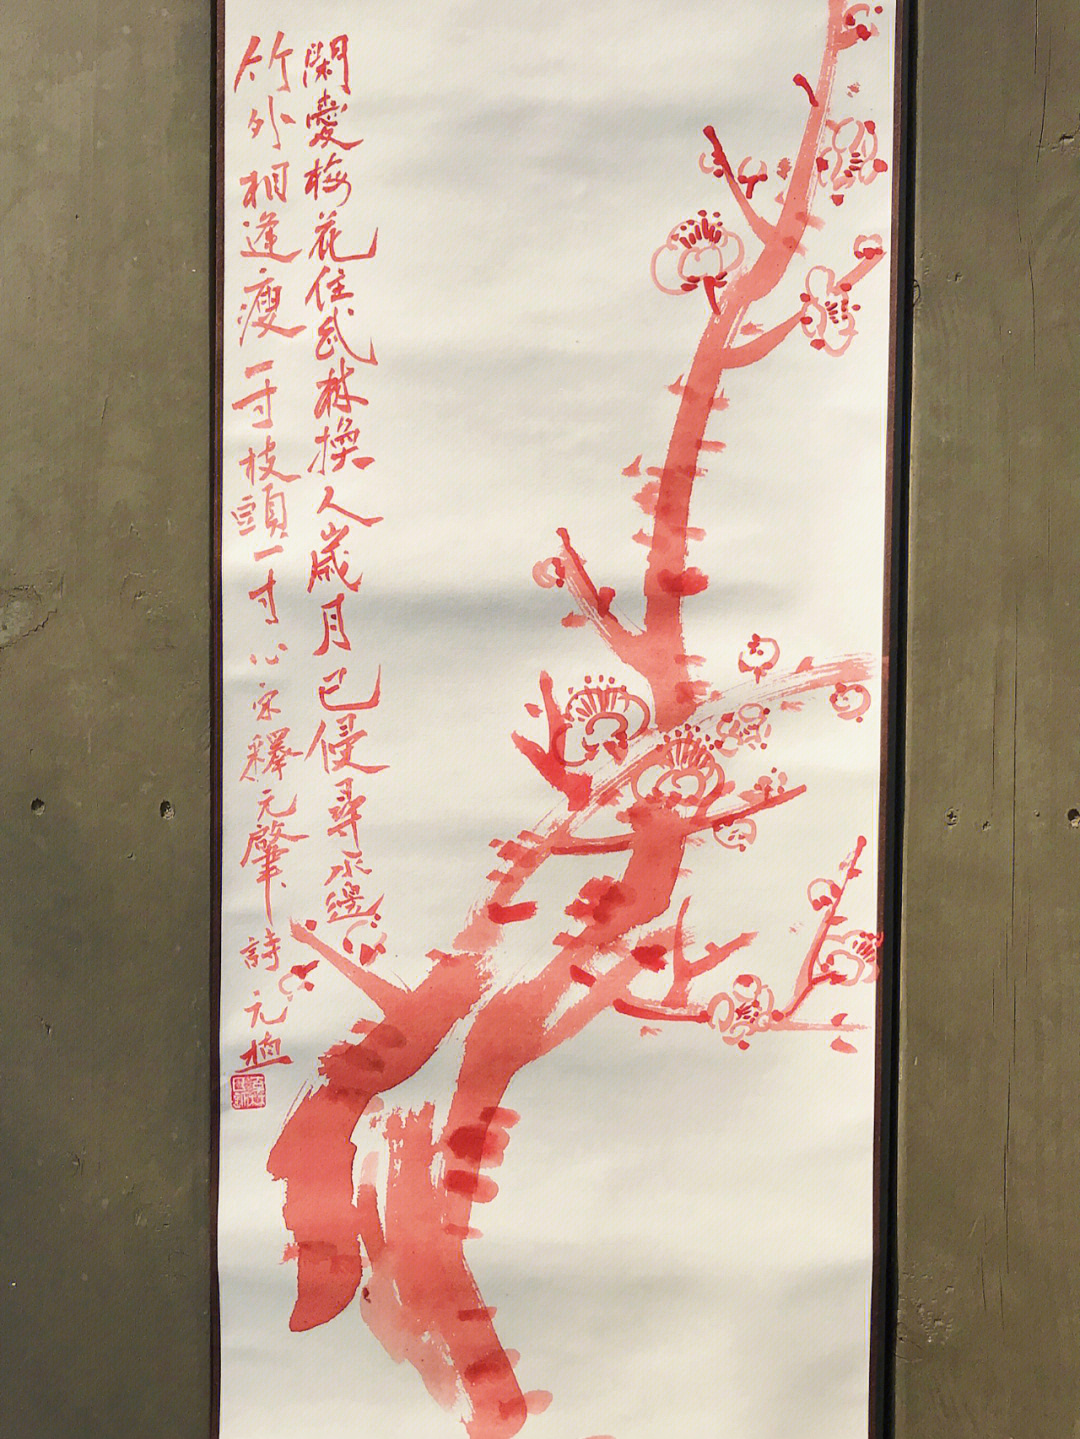 閑愛梅花住武林換人歲月已侵尋水邊
竹外相逢瘦一寸枝頭一寸心宋釋元肇詩元植